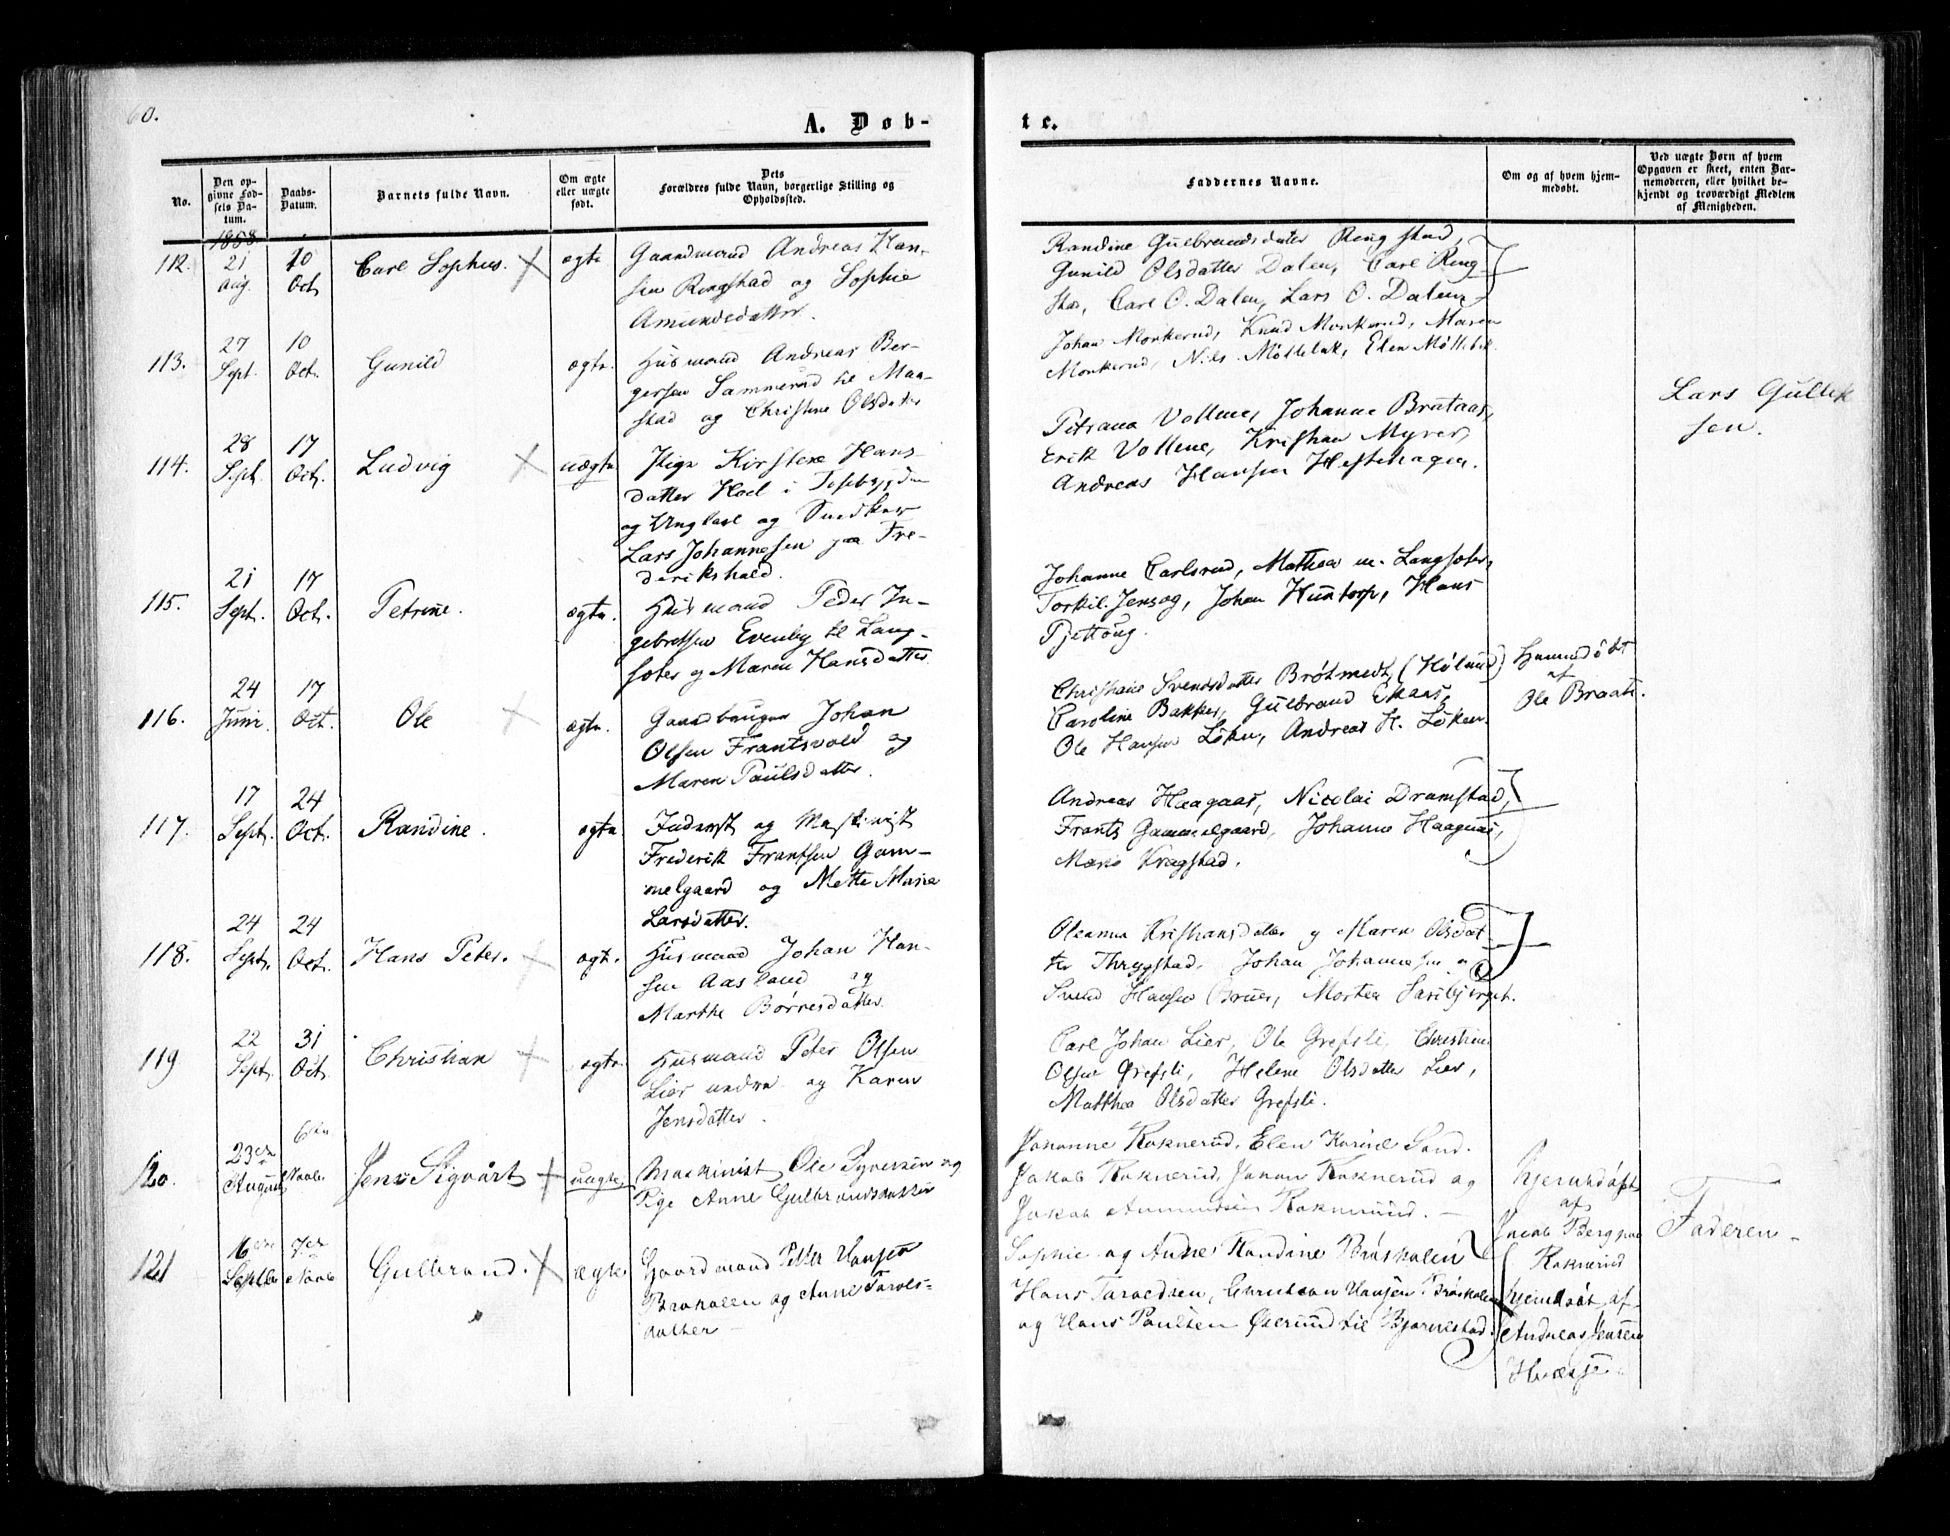 60.
A. Døb-
te.
No.
Den op-
givne Fød-
sels Da-
tum.
Daabs-
Datum.
Barnets fulde Navn.
Om ægte
eller uægte
født.
Dets
Forældres fulde Navn, borgerlige Stilling og
Opholdssted.
Faddernes Navne.
Om og af hvem hjem-
medøbt.
Ved uægte Børn af hvem
Opgaven er skeet, enten Bar-
nemoderen, eller hvilket be-
kjendt og troværdigt Medlem
af Menigheden.
1858.
112.
21
Aug.
10
Oct
Carl Sophus.
ægte
Gaardmand Andreas Han-
sen Ringstad og Sophie
Amundsdatter.
Randine Gulbrandsdatter Ringstad,
Gunild Olsdatter Dalen, Carl Ring-
stad, Carl O. Dalen, Lars O. Dalen
113.
27
Sept.
10
Oct.
Gunild
ægte.
Husmand Andreas Ber-
gersen Sammerud
stad og Christine Olsdatter
Johan Monkerud, Knud Monkerud, Maren
Monkerud, Nils Elen
114.
28
Sept.
17
Oct.
Ludvig
uægte
Pige Kirstene Hans-
datter Hoel i
og Ungkarl og Snedker
Lars Johannesen paa Fre-
derikshald.
Petrana Vollene, Johanne Braataas,
Erik Vollene, Kristian Myrer,
Andreas Hansen Hestehagen.
Lars Gullik
sen.
115.
21
Sept.
17
Oct.
Petrine.
ægte.
Husmand Peder In-
gebretsen Evenby til Lang-
seter og Maren Hansdatter
Johanne Carlsrud, Mathea m. Langseter,
Torkil Jensog, Johan Huntorp, Hans
Tjettoug.
116.
24
Juni.
17
Oct.
Ole
ægte.
Gaardbruger Johan
Olsen Frantsvold og
Maren Paulsdatter.
Christiane Svendsdatter Brøtmedt, (Høland)
Caroline Bakker, Gulbrand Ekaas,
Ole Hansen Løken, Andreas H. Løken.
Hjemdøbt
af
Ole Braate.
117.
17
Sept.
24
Oct.
Randine.
ægte
Inderst og Maskinist
Frederik Frantsen Gam-
melgaard og Mette Marie
Larsdatter.
Andreas Haagaas, Nicolai Dramstad,
Frants Gammelgaard, Johanne Haagaas,
Maria Kragstad.
118.
24
Sept.
24
Oct.
Hans Peter.
ægt.
Husmand Johan Han-
sen Aasland og
Marthe Børresdatter
Oleanna Kristiansdatter og Maren Olsdat-
ter Thrygstad, Johan Johannesen og
Svend Hansen Bruer, Morten
119
22
Sept.
31
Oct.
Christian
ægte.
Husmand Peter Olsen
Lier nedre og Karen
Jensdatter.
Carl Johan Lier, Ole Grefsli, Christian
Olsen Grefsli, Helene Olsdatter Lier,
Matthea Olsdatter Grefsli.
120.
23de
August
6te
Novbr
Jens Sigvart
uægte.
Maskinist Ole Syversen og
Pige Anne Gulbrandsdatter
Johanne Koknerud, Elen Karine Sand.
Jakob Koknerud, Johan Koknerud og
Jakob Ammundsen Koknerud. —
Hjemdøbt
af
Jacob
Koknerud
Faderen -
121
16de
Septbr
7de
Novb
Gulbrand.
ægte.
Gaardmand Petter Hansen
Braskalen og Anne Tarols-
datter
Sophie og Anne Randine Braskalen
Hans Taralsen, Christian Hansen Braskalen
og Hans Paulsen Øierud til Bjørnestad.
Hjemdøbt af
Andreas Jensen